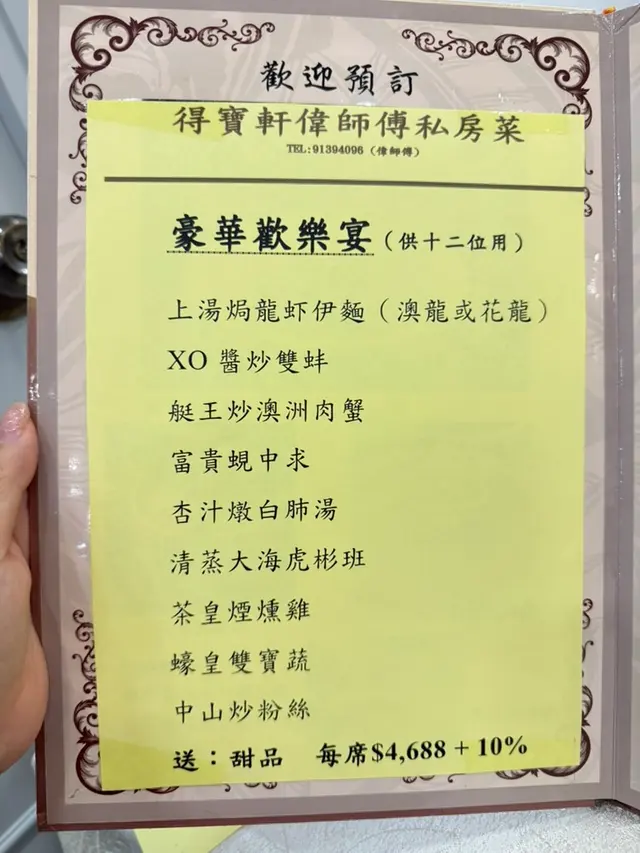 歡迎預訂
得寶軒偉師傅私房菜
TEL:91394096（偉師傅）
豪華歡樂宴（供十二位用）
上湯焗龍虾伊麵（澳龍或花龍）
XO 醬炒雙蚌
艇王炒澳洲肉蟹
富貴蜆中求
杏汁燉白肺湯
清蒸大海虎彬班
茶皇煙燻雞
蠔皇雙寶蔬
中山炒粉絲
送：甜品 每席$4,688 + 10%